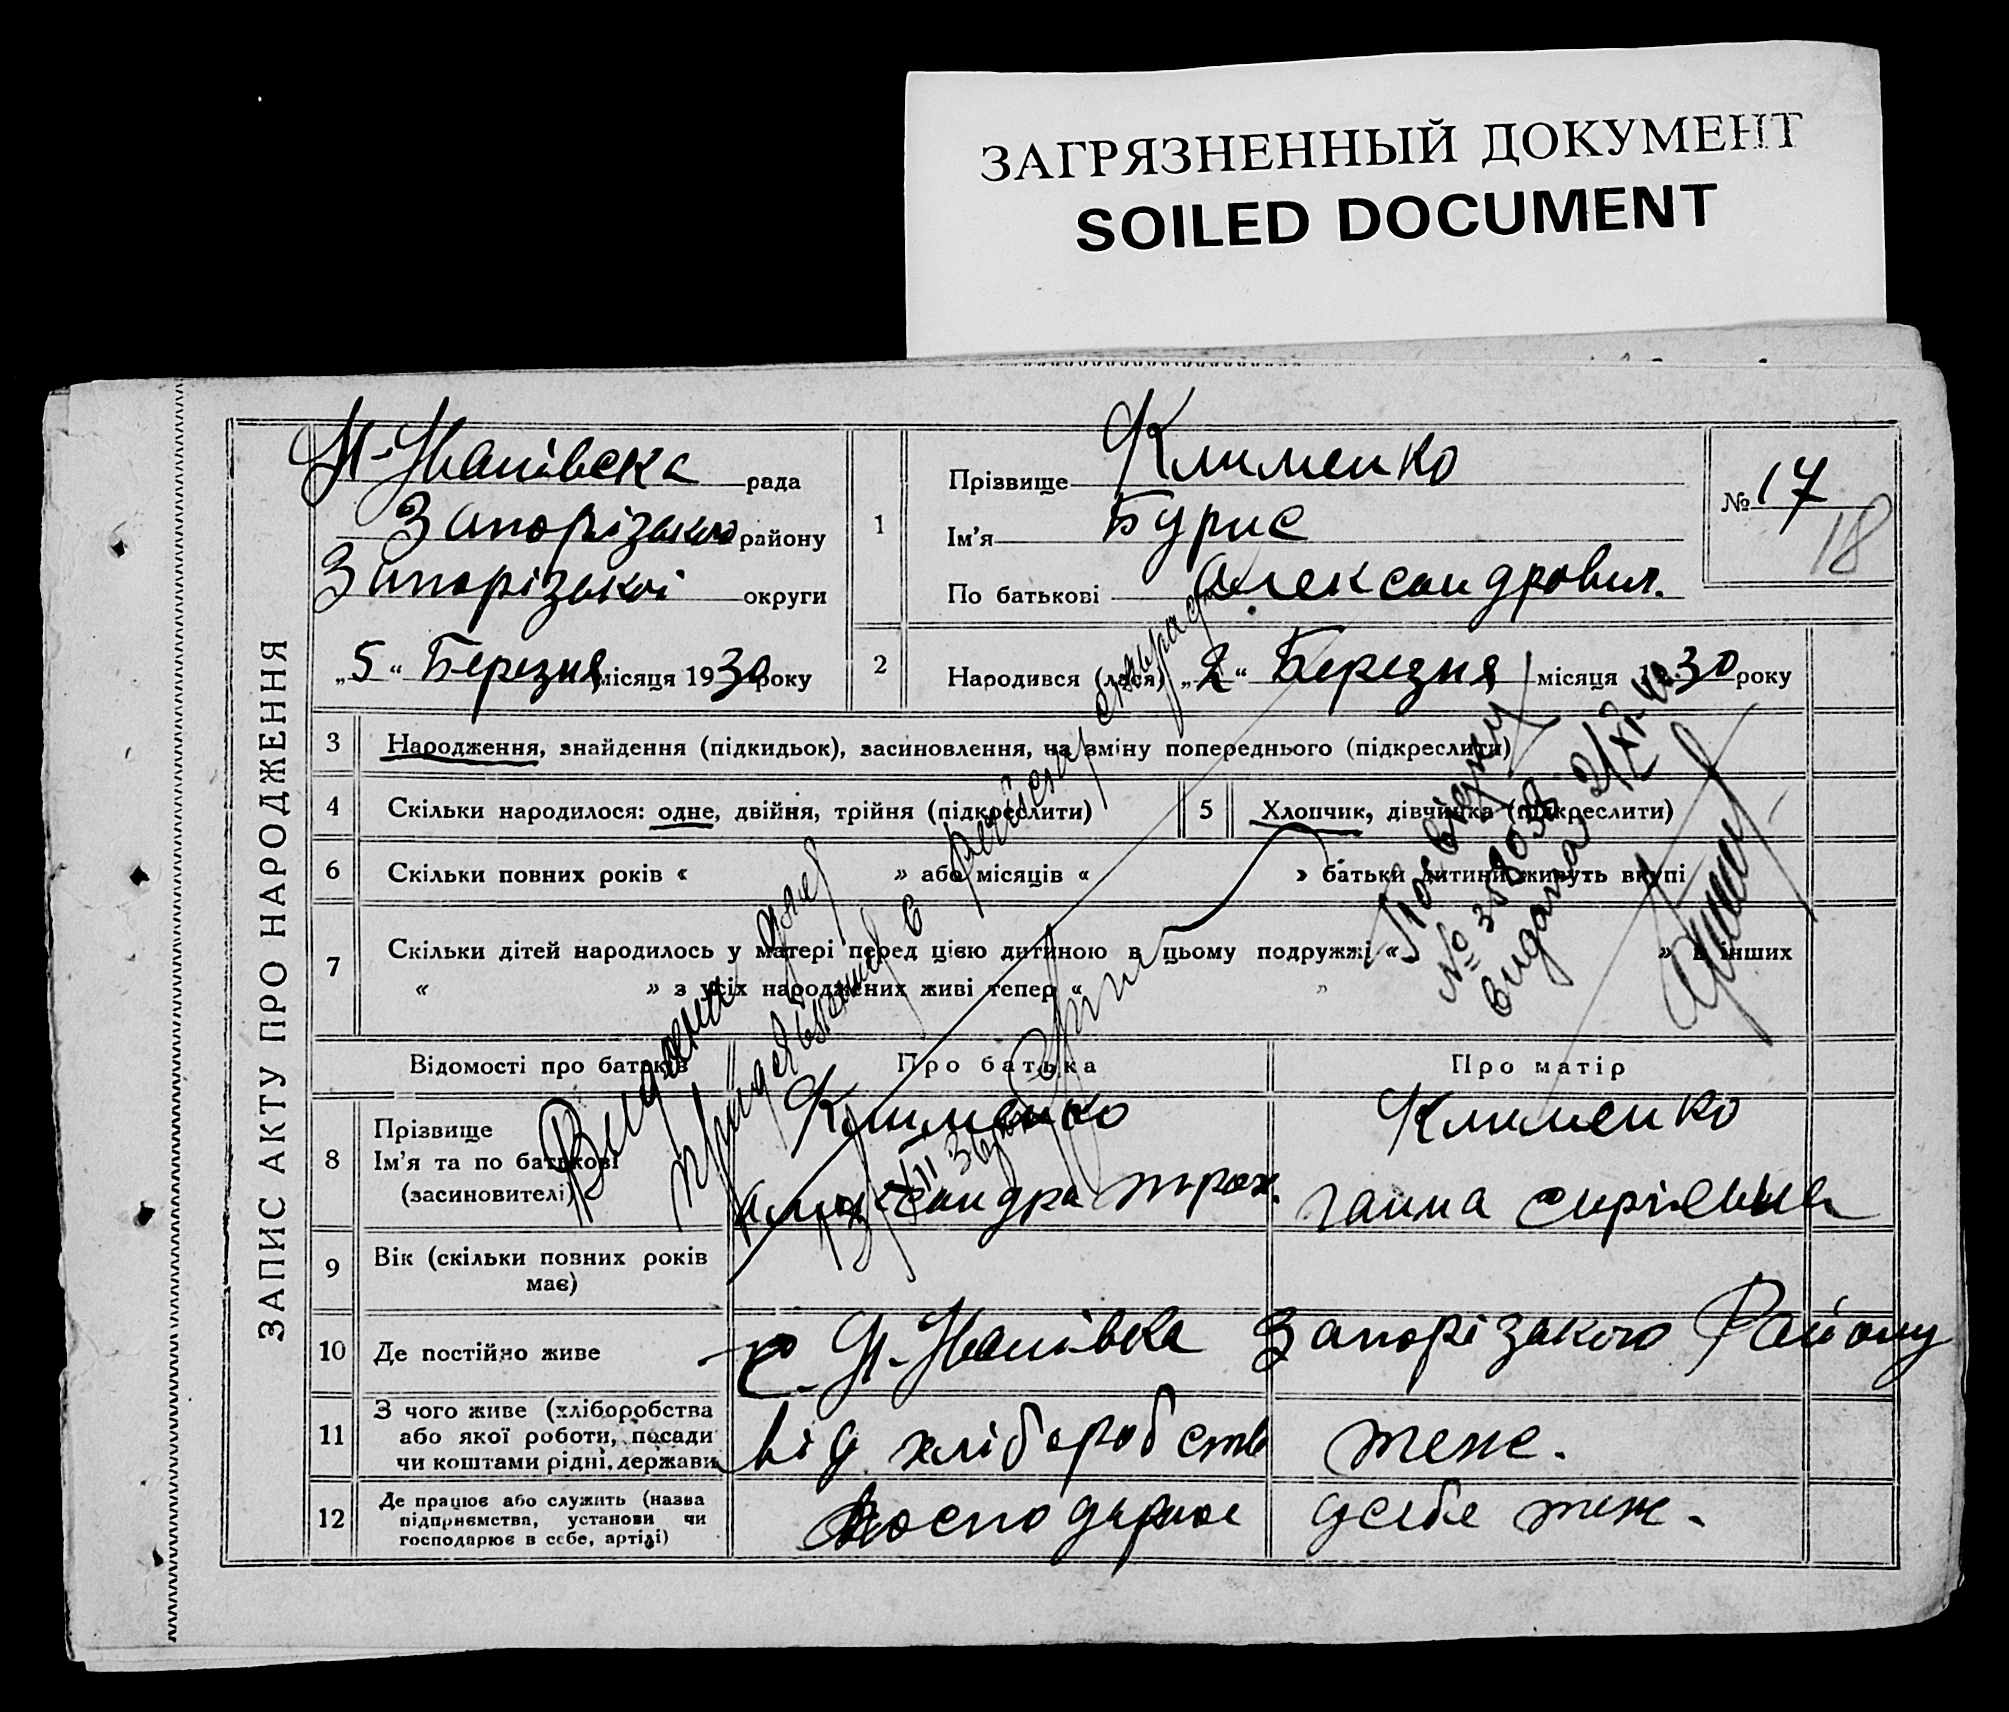 ЗАГРЯЗНЕННЫЙ ДОКУМЕНТ
SOILED DOCUMENT
ЗАПИС АКТУ ПРО НАРОДЖЕННЯ
Н-Іванівська рада
Запорізького району
Запорізької округи
„5“ Березня місяця 1930 року
1
Прізвище Клименко
Ім'я Бурис
По батькові Олександрович.
№ 17
18
2
Народився (лася) „2“ Березня місяця 1930 року
3 Народження, знайдення (підкидьок), засиновлення, на зміну попереднього (підкреслити)
4 Скільки народилося: одне, двійня, трійня (підкреслити)
5 Хлопчик, дівчинка (підкреслити)
6 Скільки повних років « » або місяців « » батьки дитини живуть вкупі
7 Скільки дітей народилось у матері перед цією дитиною в цьому подружжі « » в інших
« » з усіх народжених живі тепер « »
Видана
в
Посвідку
№
видана 21/XI-40
Відомості про батьків
Про батька
Про матір
8
Прізвище
Ім'я та по батькові
(засиновителі)
Клименко
Олександра Трох.
Клименко
Ганна Сиргіевна
9
Вік (скільки повних років
має)
10 Де постійно живе
с. Н-Іванівка Запорізького Району
11
З чого живе (хліборобства
або якої роботи, посади
чи коштами рідні, держави
від хліборобств
теже.
12
Де працює або служить (назва
підприємства, установи чи
господарює в себе, артілі)
госпо дарює
усебе теж.